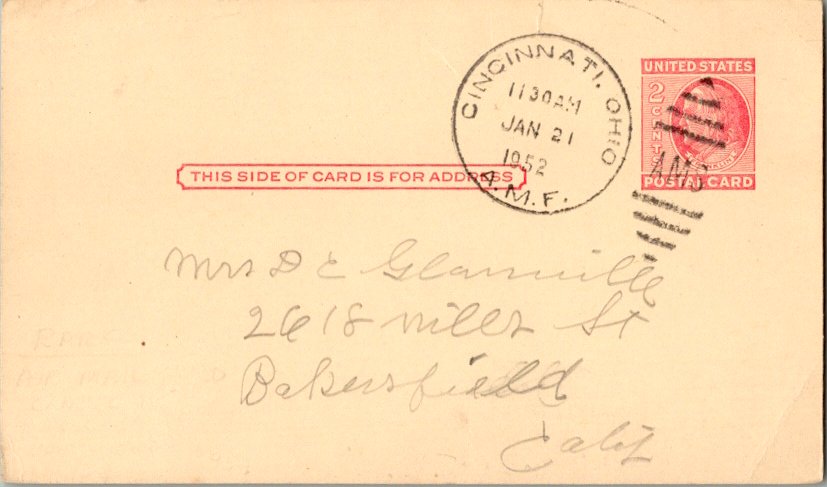 CINCINNATI, OHIO
1130AM
JAN 21
1952
A.M.F.
UNITED STATES
2 CENTS
AMS
POSTAL CARD
THIS SIDE OF CARD IS FOR ADDRESS
Mrs D E Glannville
2618 St
Bakersfield
Calif